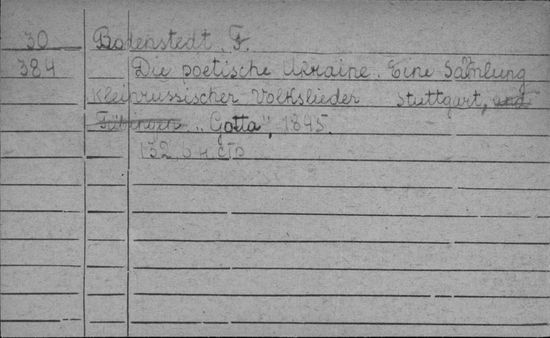 30 Bodenstedt, F.
384 Die poetische Ukraine. Eine Sam̅lung
Kleinrussischer Volkslieder Stuttgart, und
Tübingen „Gotta“, 1845.
132, b н. стр